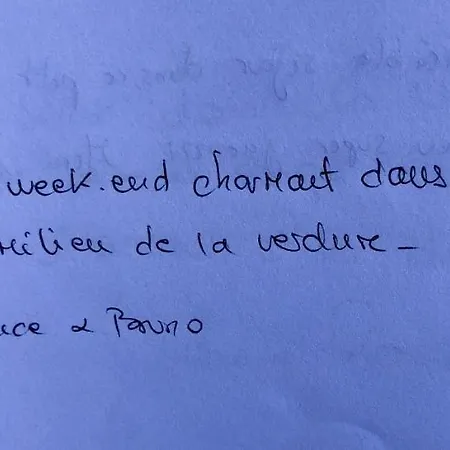 week-end charmant dans
milieu de la verdure -
& Bruno